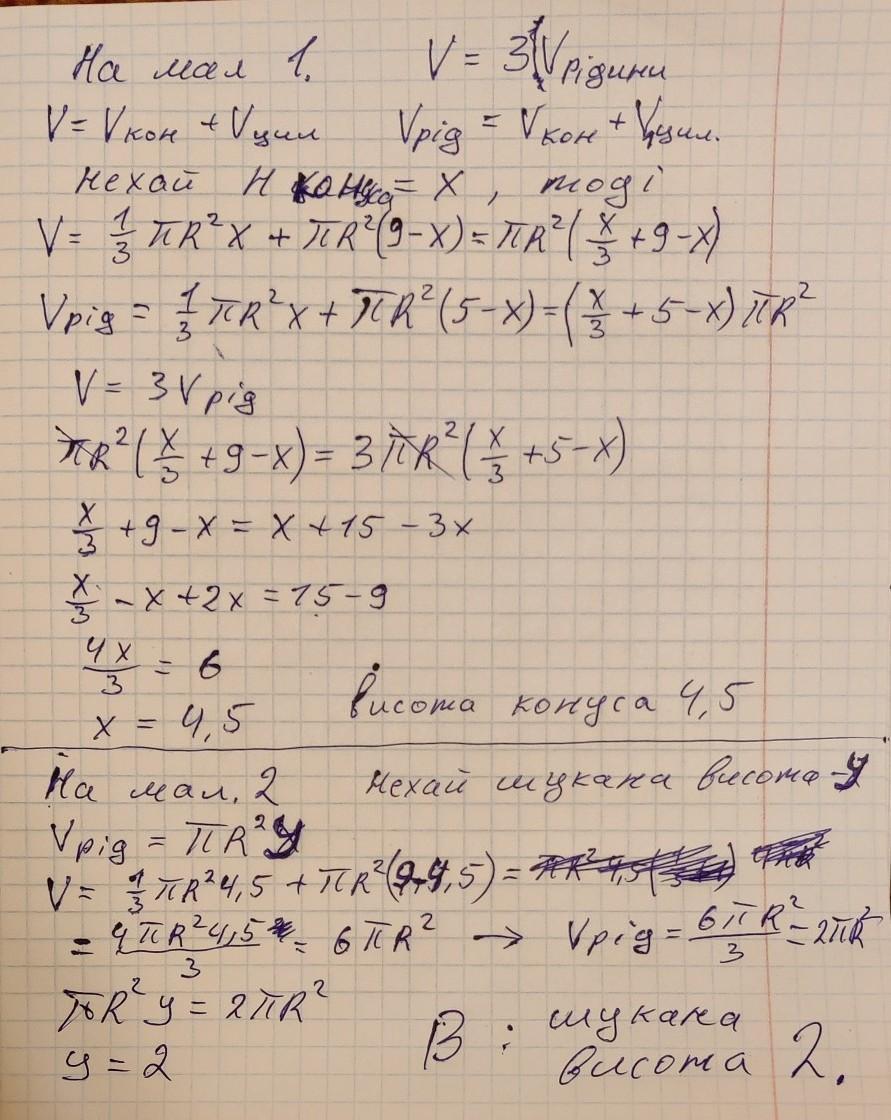 На мал 1. V = 3 Vрідини
V = Vкон + Vцил Vрід = Vкон + Vцил.
Нехай H конуса = x , тоді
V = 1/3 πR²x + πR²(9-x) = πR²(x/3 + 9 - x)
Vрід = 1/3 πR²x + πR²(5-x) = (x/3 + 5 - x) πR²
V = 3Vрід
πR²(x/3 + 9 - x) = 3πR²(x/3 + 5 - x)
x/3 + 9 - x = x + 15 - 3x
x/3 - x + 2x = 15 - 9
4x/3 = 6
x = 4,5 висота конуса 4,5
На мал. 2 Нехай шукана висота - y
Vрід = πR²y
V = 1/3 πR²4,5 + πR²(9-4,5) =
= 4πR²4,5/3 = 6πR² → Vрід = 6πR²/3 = 2πR²
πR²y = 2πR²
y = 2 В : шукана висота 2.